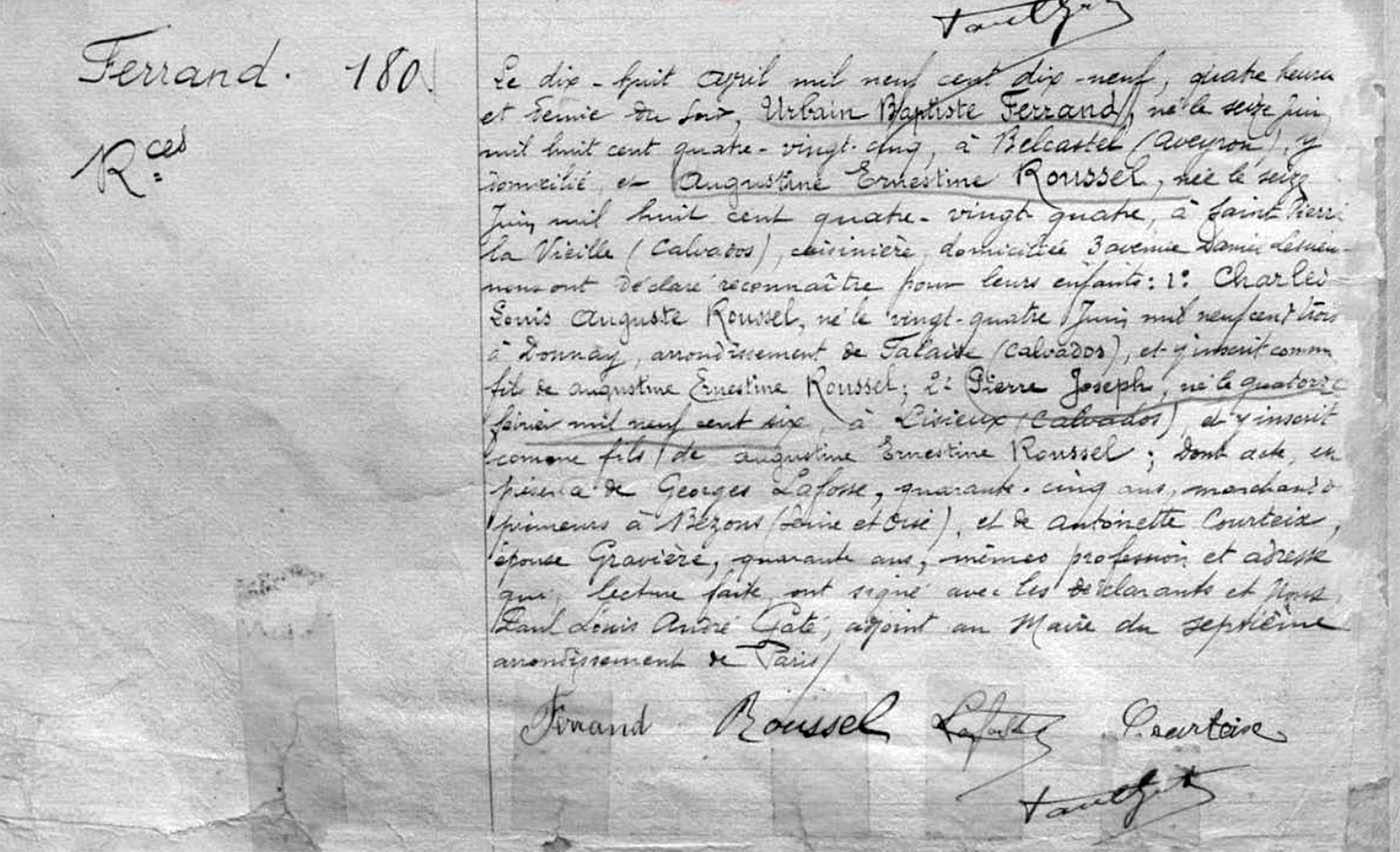 Paul Gaté
Ferrand. 180
R.ces
Le dix-huit avril mil neuf cent dix-neuf, quatre heures
et demie du soir, Urbain Baptiste Ferrand, né le seize juin
mil huit cent quatre-vingt-cinq, à Belcastel (Aveyron), y
domicilié, et Augustine Ernestine Roussel, née le seize
Juin mil huit cent quatre-vingt quatre, à Saint Pierre
la Vieille (Calvados), cuisinière, domiciliée 3 avenue Daniel Lesueur
nous ont déclaré reconnaître pour leurs enfants: 1º Charles
Louis Auguste Roussel, né le vingt-quatre Juin mil neuf cent trois
à Donnay, arrondissement de Falaise (Calvados), et y inscrit comme
fils de augustine Ernestine Roussel; 2º Pierre Joseph, né le quatorze
février mil neuf cent six, à Lisieux (Calvados), et y inscrit
comme fils de augustine Ernestine Roussel; Dont acte, en
présence de Georges Lafosse, quarante-cinq ans, marchand de
primeurs à Bezons (Seine et Oise), et de Antoinette Courteix,
épouse Gravière, quarante ans, mêmes profession et adresse
qui, lecture faite, ont signé avec les déclarants et Nous,
Paul Louis André Gaté, adjoint au Maire du septième
arrondissement de Paris/
Ferrand Roussel Lafosse Courteix
Paul Gaté